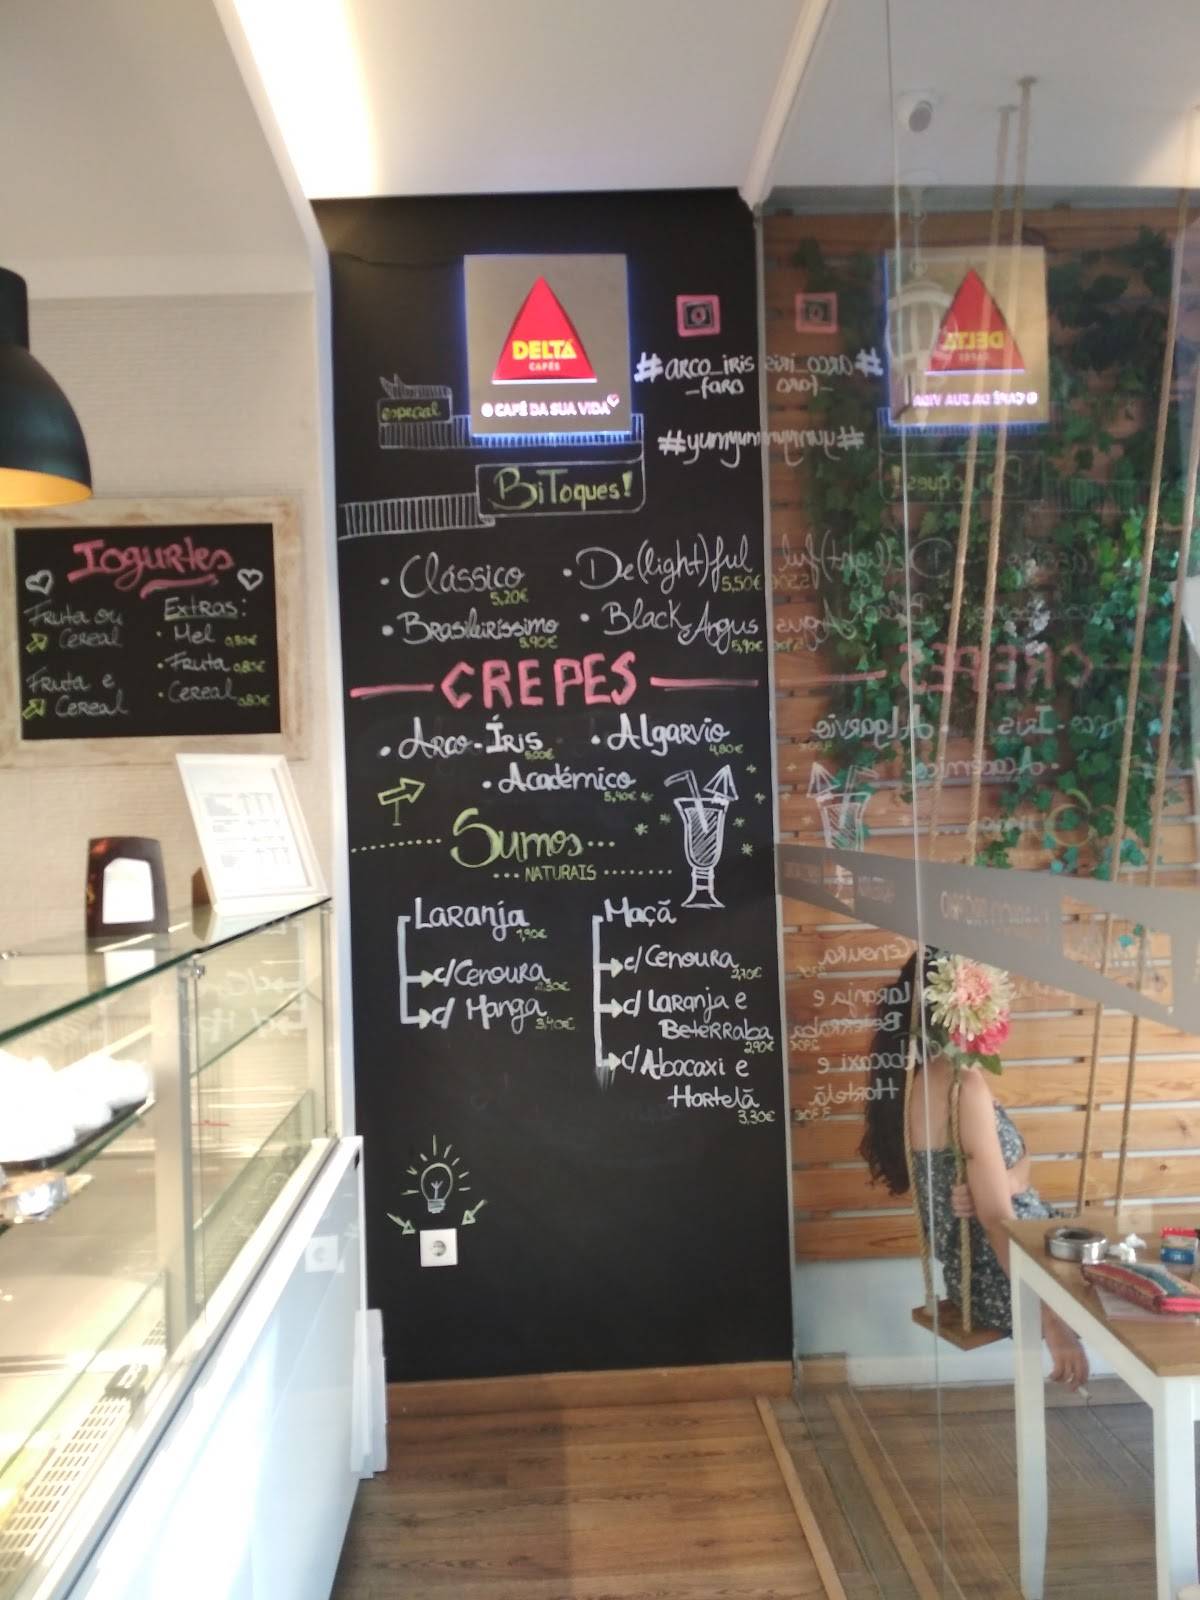 DELTA
CAFÉS
O CAFÉ DA SUA VIDA
#arco_iris
_faro
#yumyum
especial
BiToques!
• Clássico 5,20€
• De(light)ful 5,50€
• Brasileiríssimo 5,90€
• Black Angus 5,90€
CREPES
• Arco-Íris 5,00€
• Algarvio 4,80€
• Académico 5,40€
Sumos
NATURAIS
Laranja 1,90€
c/Cenoura 2,30€
c/ Manga 3,40€
Maçã
c/ Cenoura 2,70€
c/ Laranja e
Beterraba 2,90€
c/Abacaxi e
Hortelã 3,30€
Iogurtes
Fruta ou
Cereal
Fruta e
Cereal
Extras:
• Mel 0,80€
• Fruta 0,80€
• Cereal 0,80€